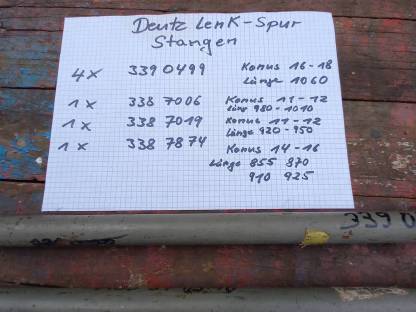 Deutz Lenk-Spur
Stangen
4x 339 0499 Konus 16-18
Länge 1060
1x 338 7006 Konus 11-12
Läng 980-1010
1x 338 7019 Konus 11-12
Länge 920-950
1x 338 7874 Konus 14-16
Länge 855 870
910 925
339 0